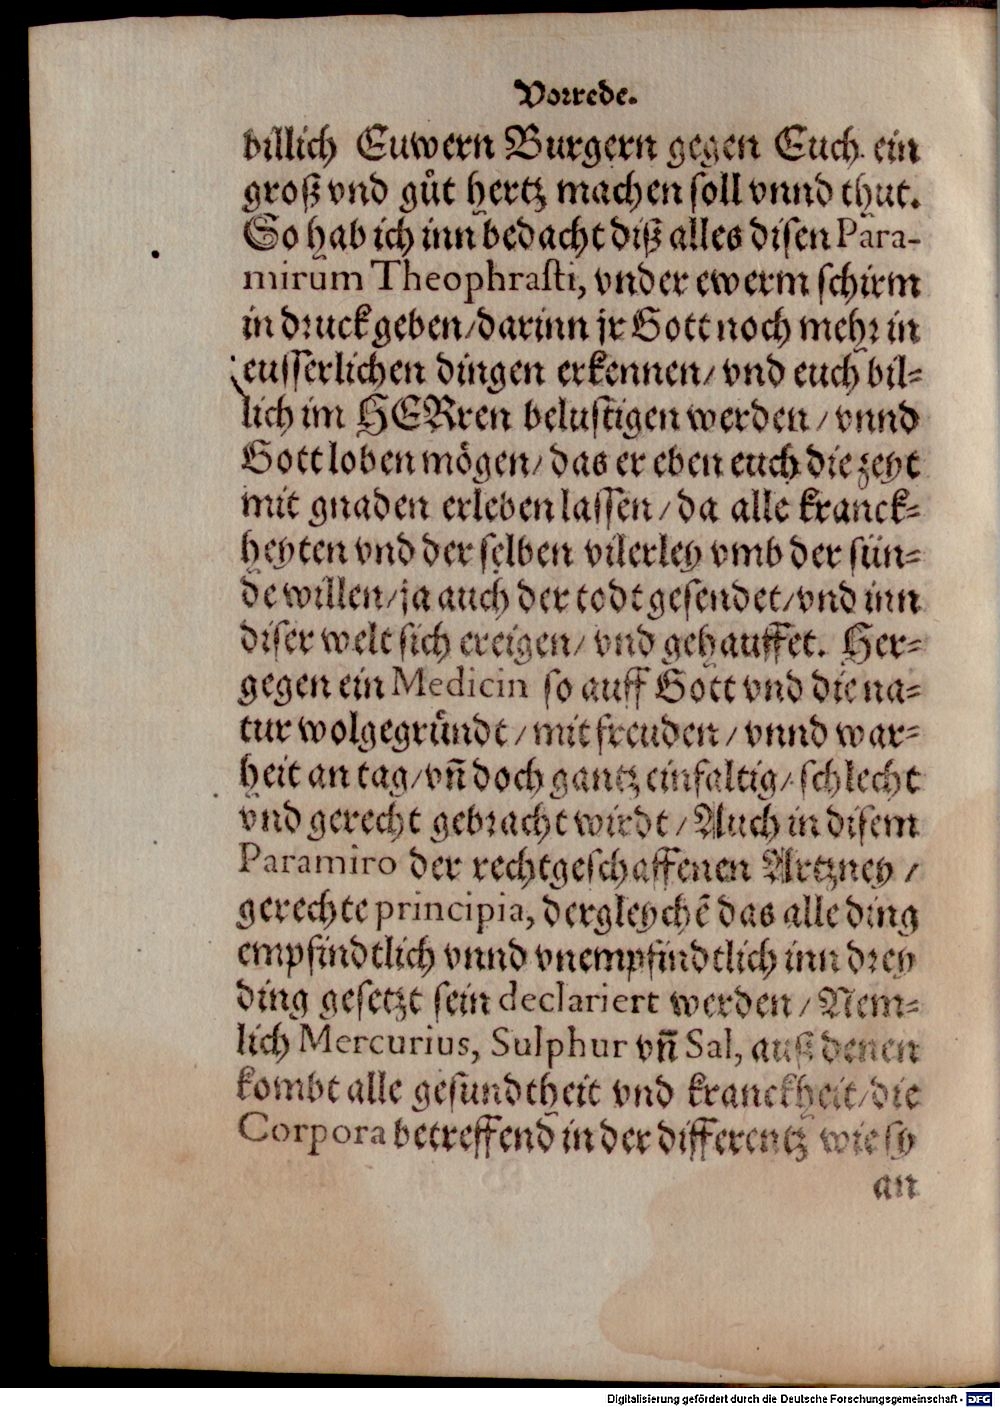 Vorrede.
billich Euwern Burgern gegen Euch ein
groß vnd gůt hertz machen soll vnnd thut.
So hab ich inn bedacht diß alles disen Para-
mirum Theophrasti, vnder ewerm schirm
in druck geben/darinn jr Gott noch mehr in
eusserlichen dingen erkennen/ vnd euch bil-
lich im HERren belustigen werden / vnnd
Gott loben mögen/ das er eben euch die zeyt
mit gnaden erleben lassen / da alle kranck-
heyten vnd der selben vilerley vmb der sün-
de willen/ja auch der todt gesendet/vnd inn
diser welt sich ereigen/ vnd gehauffet. Her-
gegen ein Medicin so auff Gott vnd die na-
tur wolgegründt / mit freuden / vnnd war-
heit an tag/vñ doch gantz einfaltig/ schlecht
vnd gerecht gebracht wirdt / Auch in disem
Paramiro der rechtgeschaffenen Artzney /
gerechte principia, dergleychẽ das alle ding
empfindtlich vnnd vnempfindtlich inn drey
ding gesetzt sein declariert werden / Nem-
lich Mercurius, Sulphur vñ Sal, auß denen
kombt alle gesundtheit vnd kranckheit/die
Corpora betreffend in der differentz wie sy
an
Digitalisierung gefördert durch die Deutsche Forschungsgemeinschaft - DFG